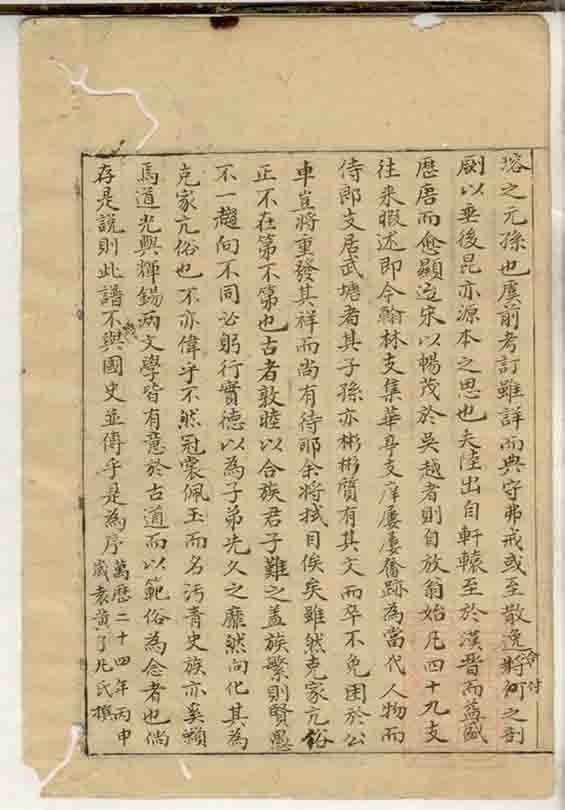 塎之元孫也虞前考訂雖詳而典守弗戒或至散逸將何之剖
命付
劂以垂後昆亦源本之思也夫陸出自軒轅至於漢晉而益盛
歷唐而愈顯迨宋以暢茂於吳越者則自放翁始凡四十九支
往来暇述即今翰林支集華亭支庠屢屢奮跡為當代人物而
侍郎支居武塘者其子孫亦彬彬質有其文而卒不免困於公
車豈將重發其祥而尚有待耶余將拭目俟矣雖然克家亢俗
正不在第不第也古者敦睦以合族君子難之盖族繁則賢愚
不一趨向不同必躬行實德以為子弟先久之靡然向化其為
克家亢俗也不亦偉乎不然冠裳佩玉而名污青史族亦奚賴
焉道光與輝錫两文學皆有意於古道而以範俗為念者也倘
存是說則此譜不與國史並傳乎是為序
萬曆二十四年丙申
歲袁黄了凡氏撰